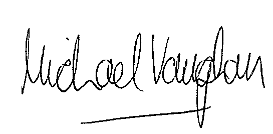 Michael Vaughan